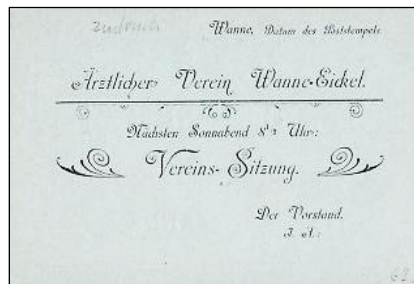 Wanne, Datum des Poststempels
Ärztlicher Verein Wanne-Eickel.
Nächsten Sonnabend 8 1/2 Uhr:
Vereins-Sitzung.
Der Vorstand.
I. A.: